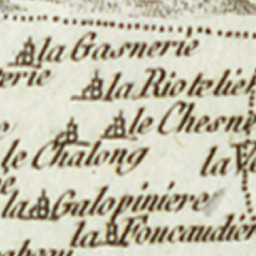 la Gasnerie
erie
la Riotelie
le Chesne
le Chalong
la
la Galopiniere
la Foucaudier
abeau